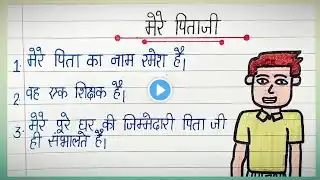 मेरे पिताजी
1. मेरे पिता का नाम रमेश है।
2. वह एक शिक्षक है।
3. मेरे पूरे घर की जिम्मेदारी पिता जी
ही संभालते हैं।